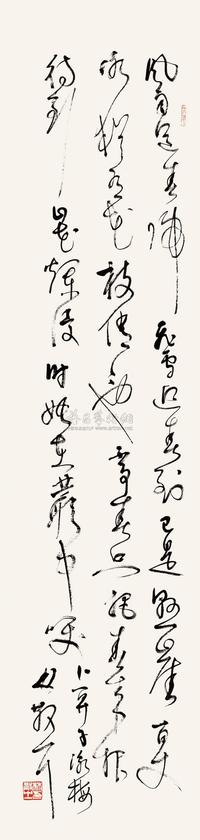 风雨送春归飛雪迎春到已是懸崖百丈
冰犹有花枝俏俏也不争春只把春来报
待到山花烂漫时她在叢中笑
卜算子咏梅